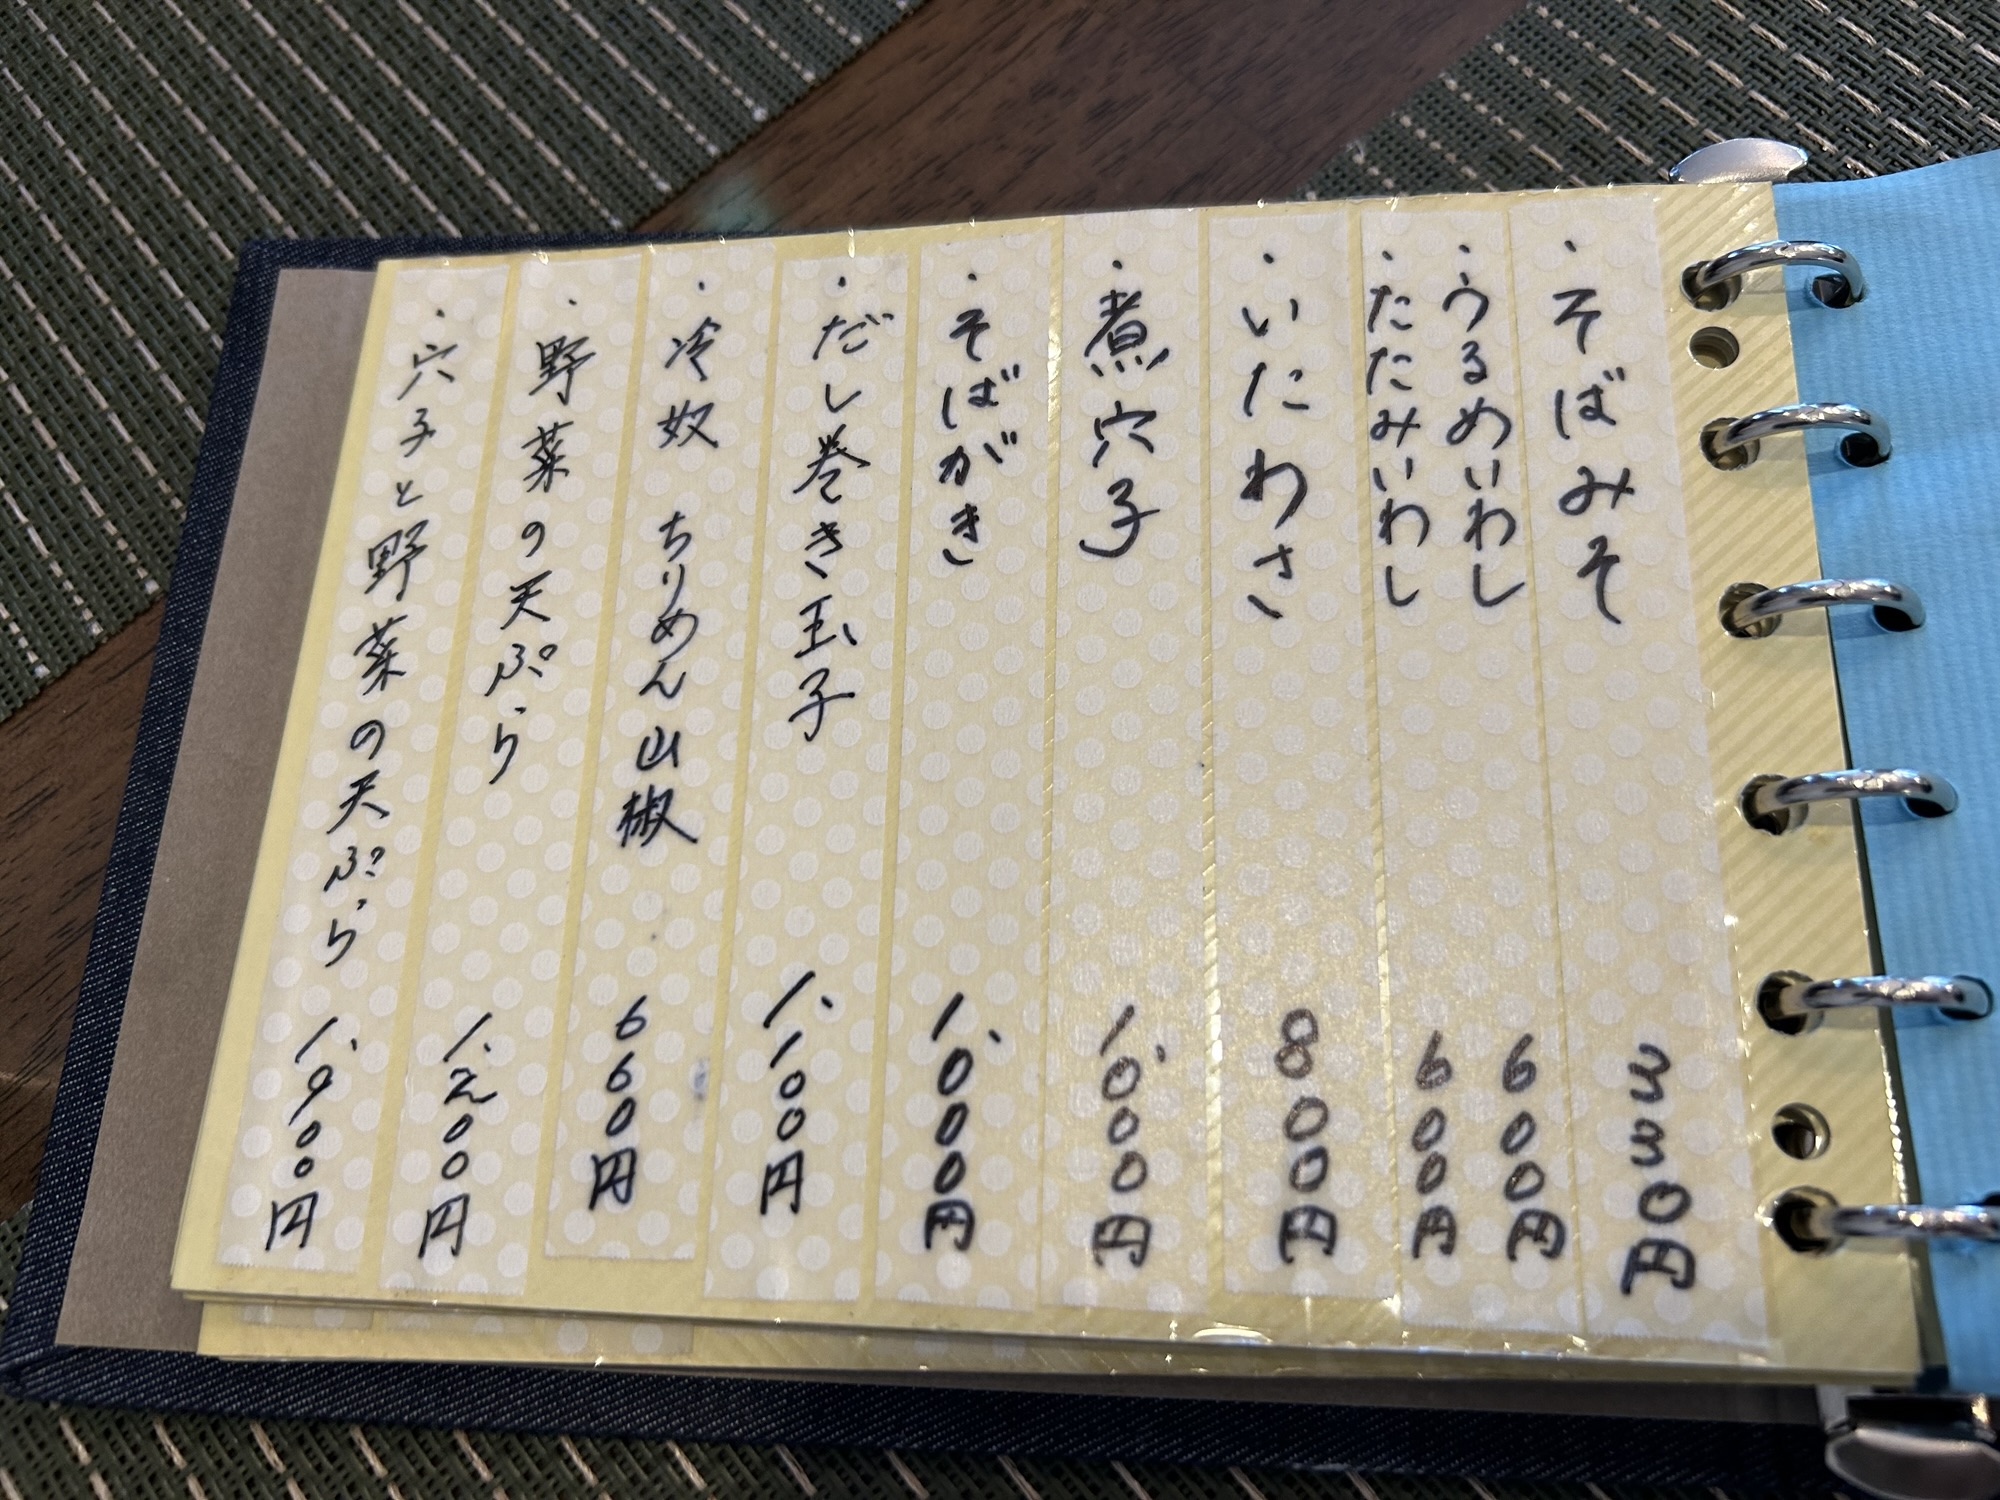 ・そばみそ 330円
・うるめいわし 600円
・たたみいわし 600円
・いたわさ 800円
・煮穴子 1,000円
・そばがき 1,000円
・だし巻き玉子 1,100円
・冷奴 ちりめん山椒 660円
・野菜の天ぷら 1,200円
・穴子と野菜の天ぷら 1,900円